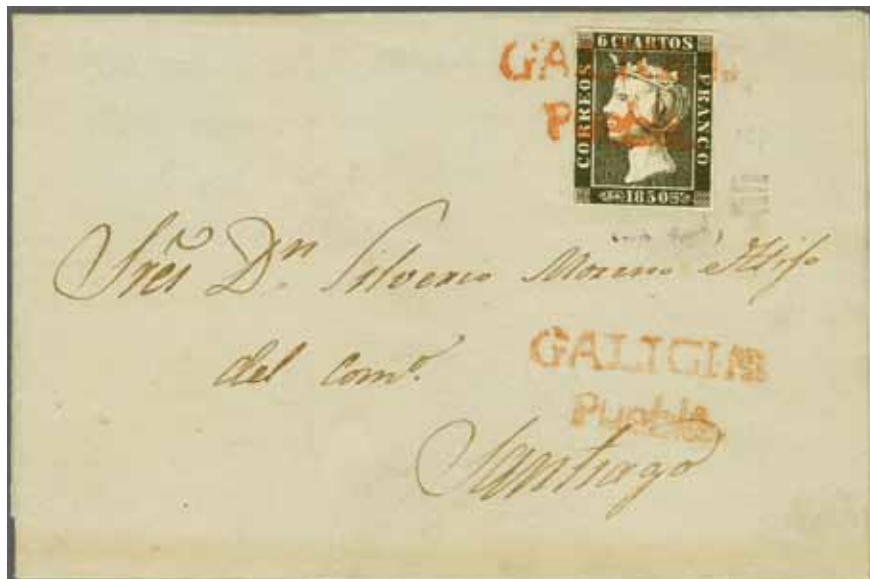 6 CUARTOS
CORREOS
FRANCO
1850
Sres Dn. Silverio Moreno é Hijo
del Como.
GALICIA
Puebla
Santiago